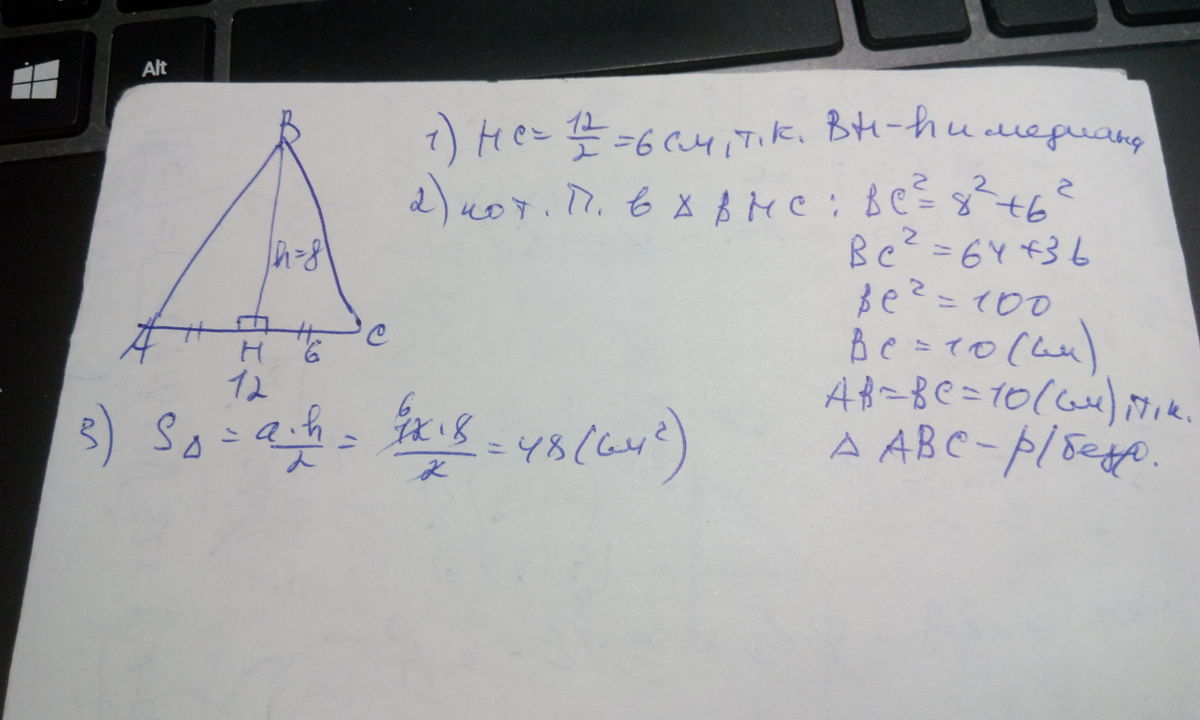 Alt
B
h=8
A
H
6
C
12
1) HC = 12/2 = 6 см, т.к. BH - h и медиана
2) по т. П. в Δ BHC : BC² = 8² + 6²
BC² = 64 + 36
BC² = 100
BC = 10 (см)
AB = BC = 10 (см), т.к.
Δ ABC - р/бедр.
3) S Δ = a·h/2 = 12·8/2 = 48 (см²)
6